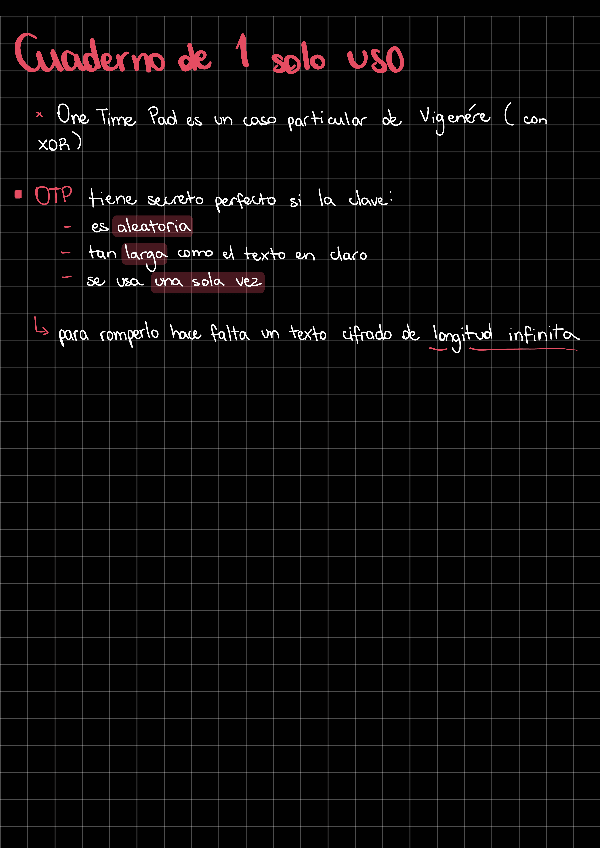 Cuaderno de 1 solo uso
x One Time Pad es un caso particular de Vigenére ( con
XOR)
▪ OTP tiene secreto perfecto si la clave:
- es aleatoria
- tan larga como el texto en claro
- se usa una sola vez
↳ para romperlo hace falta un texto cifrado de longitud infinita